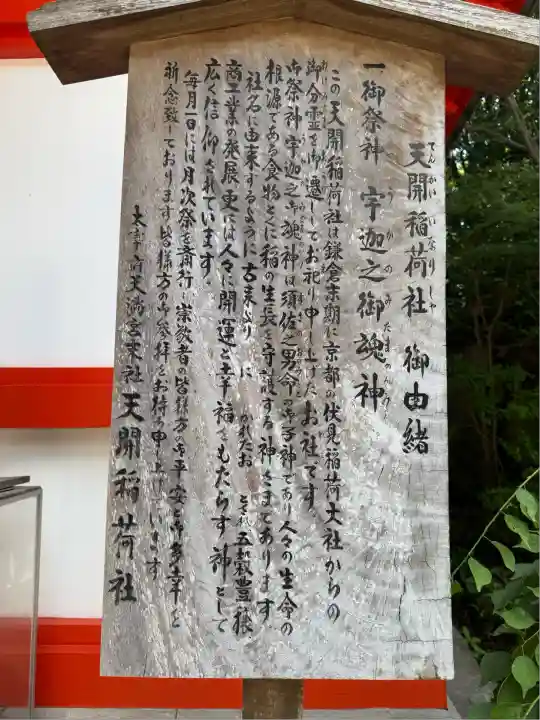 天開稲荷社 御由緒
てんかいいなりしゃ
一御祭神 宇迦之御魂神
うかのみたまのかみ
この天開稲荷社は鎌倉末期に京都の伏見稲荷大社からの
御分霊を御遷してお祀り申し上げたお社です
御祭神宇迦之御魂神は須佐之男命の御子神であり人々の生命の
根源である食物とくに稲の生長を守護する神さまであります
社名に由来するように古来より に かれたお とされ五穀豊穣
商工業の発展、更には人々に開運と幸福をもたらす神として
広く信仰されています
毎月一日には月次祭を斎行し崇敬者の皆様方の御平安と御多幸を
祈念致しております皆様方の御参拝をお待ち申し上げ います
太宰府天満宮末社 天開稲荷社